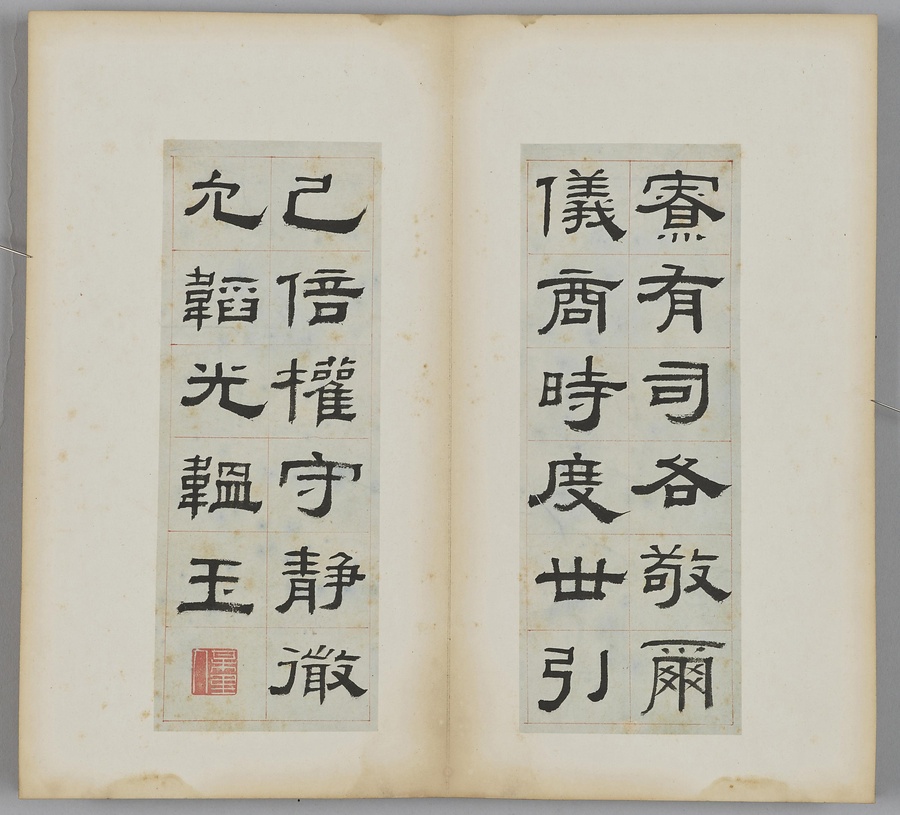 寮有司各敬爾
儀商時度世引
己倍權守靜
韜光韞玉